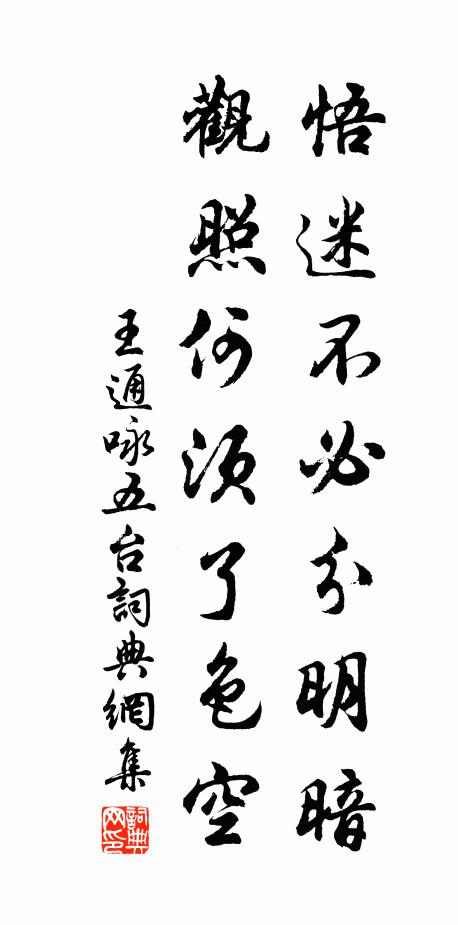 悟迷不必分明暗
觀照何須了色空
王通咏五台詞典網集
詞典網印